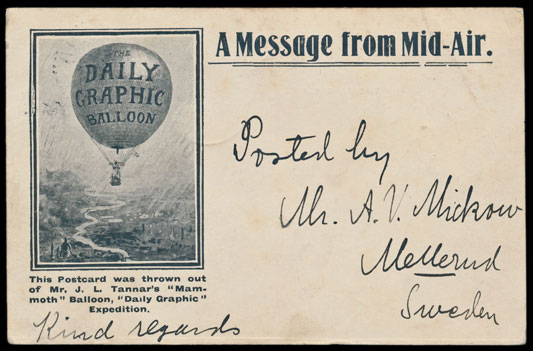 A Message from Mid-Air.
THE
DAILY
GRAPHIC
BALLOON
Posted by
Mr. A. V. Mickow
Mellerud
Sweden
This Postcard was thrown out
of Mr. J. L. Tannar's "Mam-
moth" Balloon, "Daily Graphic"
Expedition.
Kind regards